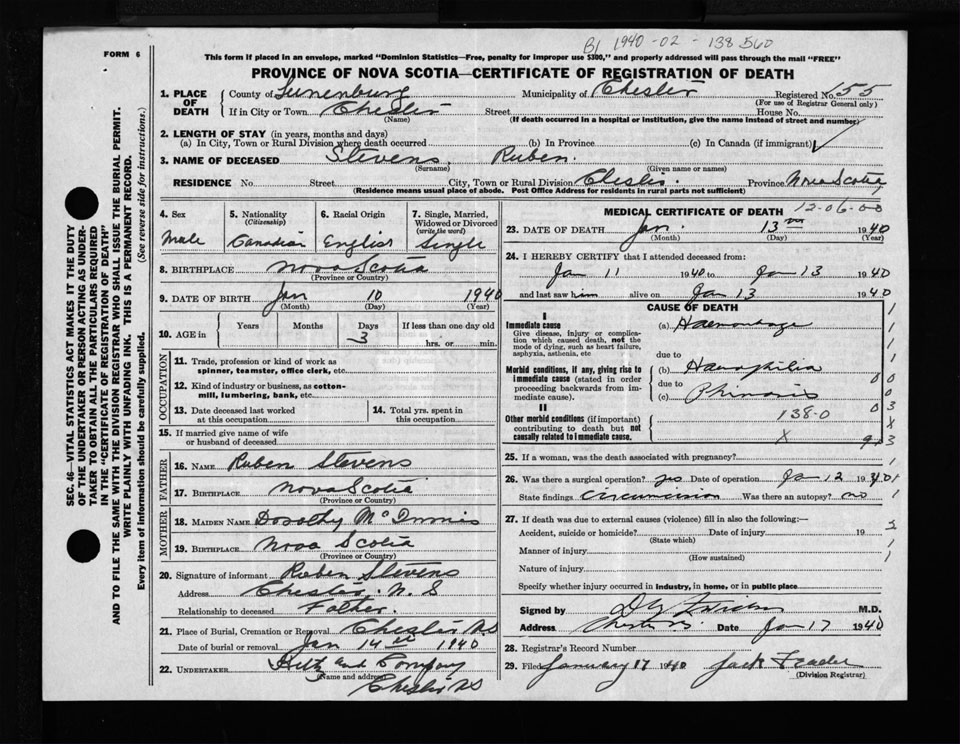 B1 1940-02-138560
FORM 6
This form if placed in an envelope, marked "Dominion Statistics—Free, penalty for improper use $300," and properly addressed will pass through the mail "FREE"
PROVINCE OF NOVA SCOTIA—CERTIFICATE OF REGISTRATION OF DEATH
1. PLACE OF DEATH
County of Lunenburg Municipality of Chester Registered No. 55
(For use of Registrar General only)
If in City or Town Chester Street House No.
(Name) (If death occurred in a hospital or institution, give the name instead of street and number)
2. LENGTH OF STAY (in years, months and days)
(a) In City, Town or Rural Division where death occurred (b) In Province (c) In Canada (if immigrant)
3. NAME OF DECEASED Stevens, Ruben.
(Surname) (Given name or names)
RESIDENCE No. Street City, Town or Rural Division Chester Province Nova Scotia
(Residence means usual place of abode. Post Office Address for residents in rural parts not sufficient)
4. Sex Male
5. Nationality (Citizenship) Canadian
6. Racial Origin English
7. Single, Married, Widowed or Divorced (write the word) Single
8. BIRTHPLACE Nova Scotia
(Province or Country)
9. DATE OF BIRTH Jan 10 1940
(Month) (Day) (Year)
10. AGE in Years Months Days 3 If less than one day old hrs. or min.
OCCUPATION
11. Trade, profession or kind of work as spinner, teamster, office clerk, etc.
12. Kind of industry or business, as cotton-mill, lumbering, bank, etc.
13. Date deceased last worked at this occupation
14. Total yrs. spent in this occupation
15. If married give name of wife or husband of deceased
FATHER
16. NAME Ruben Stevens
17. BIRTHPLACE Nova Scotia
(Province or Country)
MOTHER
18. MAIDEN NAME Dorothy McInnis
19. BIRTHPLACE Nova Scotia
(Province or Country)
20. Signature of informant Ruben Stevens
Address Chester, N.S
Relationship to deceased Father.
21. Place of Burial, Cremation or Removal Chester NS
Date of burial or removal Jan 14th 1940
22. UNDERTAKER and Company
(Name and address) Chester NS
MEDICAL CERTIFICATE OF DEATH 12-06-00
23. DATE OF DEATH Jan. 13 1940
(Month) (Day) (Year)
24. I HEREBY CERTIFY that I attended deceased from:
Jan 11 1940 to Jan 13 1940
and last saw him alive on Jan 13 1940
CAUSE OF DEATH
I
Immediate cause (a) Haemorrhage
Give disease, injury or complication which caused death, not the mode of dying, such as heart failure, asphyxia, asthenia, etc
due to
Morbid conditions, if any, giving rise to immediate cause (stated in order proceeding backwards from immediate cause).
(b) Haemophilia
due to
(c)
II
Other morbid conditions (if important) contributing to death but not causally related to immediate cause.
138-0
X
25. If a woman, was the death associated with pregnancy?
26. Was there a surgical operation? yes Date of operation Jan 12 1940
State findings circumcision Was there an autopsy? no
27. If death was due to external causes (violence) fill in also the following:—
Accident, suicide or homicide? Date of injury 19
(State which)
Manner of injury
(How sustained)
Nature of injury
Specify whether injury occurred in industry, in home, or in public place
Signed by M.D.
Address Chester NS. Date Jan 17 1940
28. Registrar's Record Number
29. Filed January 17 1940
(Division Registrar)
SEC. 46—VITAL STATISTICS ACT MAKES IT THE DUTY
OF THE UNDERTAKER OR PERSON ACTING AS UNDER-
TAKER TO OBTAIN ALL THE PARTICULARS REQUIRED
IN THE "CERTIFICATE OF REGISTRATION OF DEATH"
AND TO FILE THE SAME WITH THE DIVISION REGISTRAR WHO SHALL ISSUE THE BURIAL PERMIT.
WRITE PLAINLY WITH UNFADING INK. THIS IS A PERMANENT RECORD.
Every item of information should be carefully supplied. (See reverse side for instructions.)